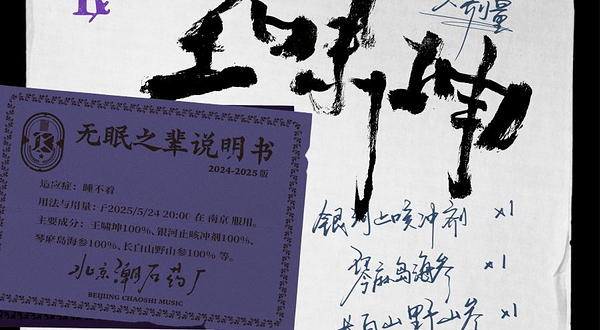 王啸坤
无眠之辈说明书
2024-2025版
适应症：睡不着
用法与用量：于2025/5/24 20:00 在 南京 服用。
主要成分：王啸坤100%、银河止咳冲剂100%、
琴麻岛海参100%、长白山野山参100% 等。
北京潮石药厂
BEIJING CHAOSHI MUSIC
银河止咳冲剂 x1
琴麻岛海参 x1
长白山野山参 x1